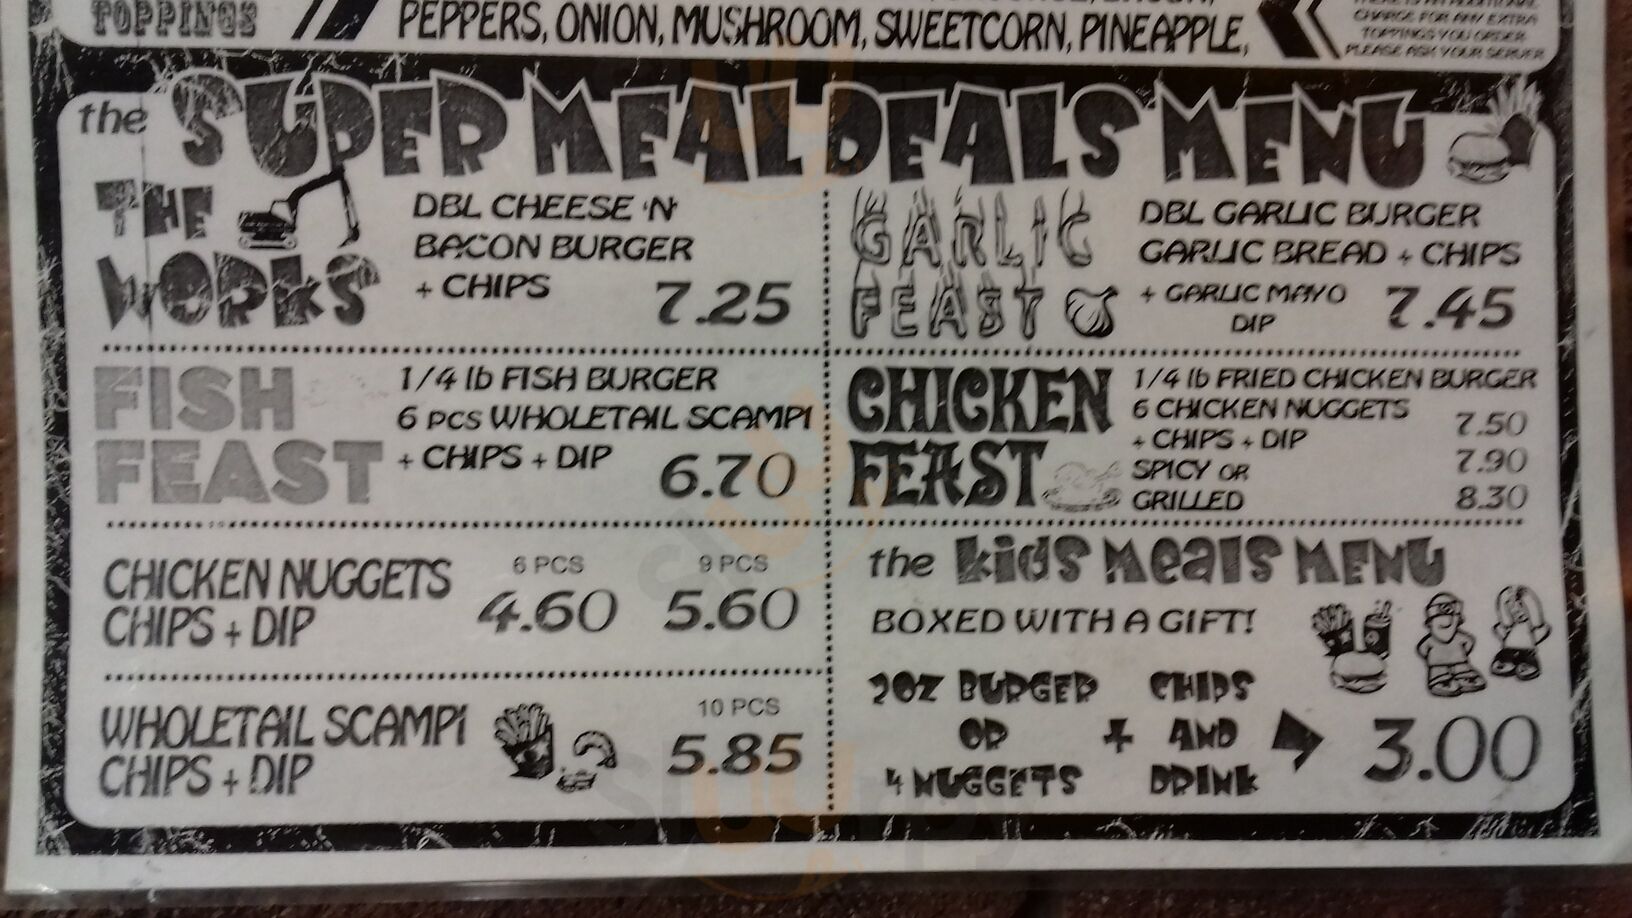 TOPPINGS
PEPPERS, ONION, MUSHROOM, SWEETCORN, PINEAPPLE,
CHARGE FOR ANY EXTRA
TOPPINGS YOU ORDER
PLEASE ASK YOUR SERVER
the SUPER MEAL DEALS MENU
THE
WORKS
DBL CHEESE 'N'
BACON BURGER
+ CHIPS
7.25
GARLIC
FEAST
DBL GARLIC BURGER
GARLIC BREAD + CHIPS
+ GARLIC MAYO
DIP
7.45
FISH
FEAST
1/4 lb FISH BURGER
6 PCS WHOLETAIL SCAMPI
+ CHIPS + DIP
6.70
CHICKEN
FEAST
1/4 lb FRIED CHICKEN BURGER
6 CHICKEN NUGGETS 7.50
+ CHIPS + DIP
SPICY OR 7.90
GRILLED 8.30
CHICKEN NUGGETS
CHIPS + DIP
6 PCS 9 PCS
4.60 5.60
WHOLETAIL SCAMPI
CHIPS + DIP
10 PCS
5.85
the kids Meals MENU
BOXED WITH A GIFT!
2OZ BURGER CHIPS
OR + AND 3.00
4 NUGGETS DRINK